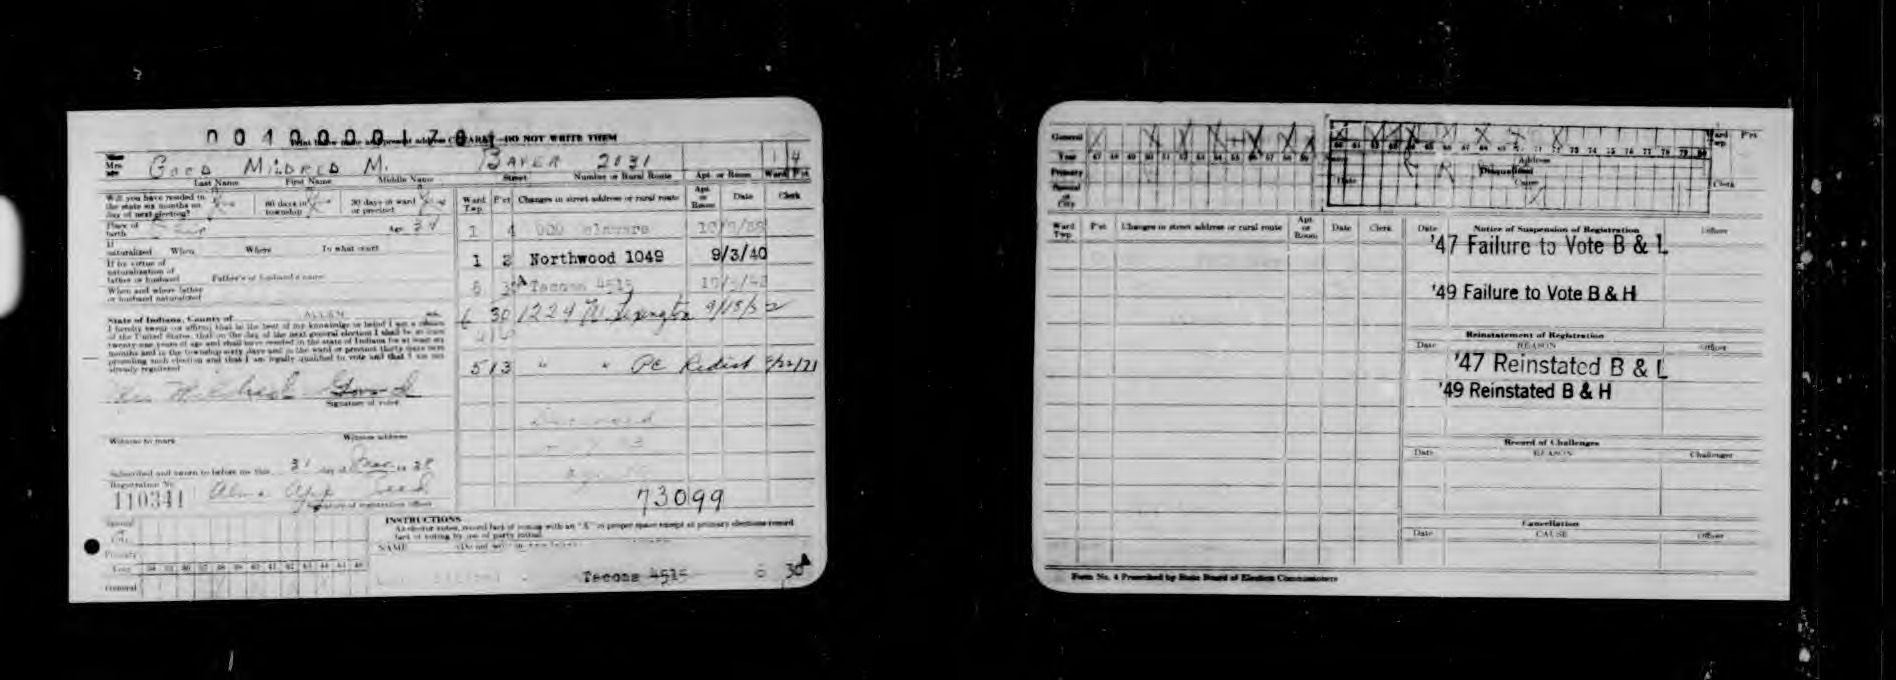 0010000178
Print above name and present address CLEARLY—DO NOT WRITE THEM
Mrs. GOOD MILDRED M. BAKER 2031 1 4
Last Name First Name Middle Name Street Number or Rural Route Apt. or Room Ward P'ct
Will you have resided in the state six months on day of next election? 60 days in township 30 days in ward or precinct
Ward Twp. P'ct Changes in street address or rural route Apt. or Room Date Clerk
Place of birth Age 34
1 4
If naturalized When Where In what court
1 2 Northwood 1049 9/3/40
If by virtue of naturalization of father or husband Father's or husband's name
When and where father or husband naturalized
Tacoma 4515
6 30 1224 W. Lexington 9/18/52
State of Indiana, County of ALLEN ss:
I hereby swear (or affirm) that to the best of my knowledge or belief I am a citizen of the United States, that on the day of the next general election I shall be at least twenty-one years of age and shall have resided in the state of Indiana for at least six months and in the township sixty days and in the ward or precinct thirty days next preceding such election and that I am legally qualified to vote and that I am not already registered
513 " " PC Redist
Mrs Mildred Good
Signature of voter
Witness to mark Witness address
Subscribed and sworn to before me this 31 day of 38
Registration No.
110341 Alma App
Signature of registration officer
73099
INSTRUCTIONS
As elector votes, record fact of voting with an "X" in proper space except at primary elections record fact of voting by use of party initial.
NAME
Special
Primary
Year 34 35 36 37 38 39 40 41 42 43 44 45 46
General
Tacoma 4515 6 30A
General
Year 47 48 49 50 51 52 53 54 55 56 57 58 59
Primary
Special or City
60 61 62 63 64 65 66 67 68 69 70 71 72 73 74 75 76 77 78 79 80
Ward Twp. P'ct
Address
Disqualified
Date Cause Clerk
Ward Twp. P'ct Changes in street address or rural route Apt. or Room Date Clerk
Date Notice of Suspension of Registration Officer
'47 Failure to Vote B & L
'49 Failure to Vote B & H
Reinstatement of Registration
Date REASON Officer
'47 Reinstated B & L
'49 Reinstated B & H
Record of Challenges
Date REASON Challenger
Cancellation
Date CAUSE Officer
Form No. 4 Prescribed by State Board of Election Commissioners